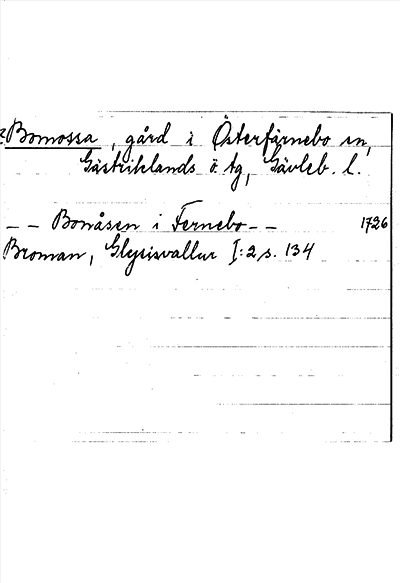 ?Bomossa, gård i Österfärnebo sn,
Gästriklands ö. tg, Gävleb. l.
— — Bonåsen i Fernebo — — 1726
Broman, Glysisvallur I:2 s. 134